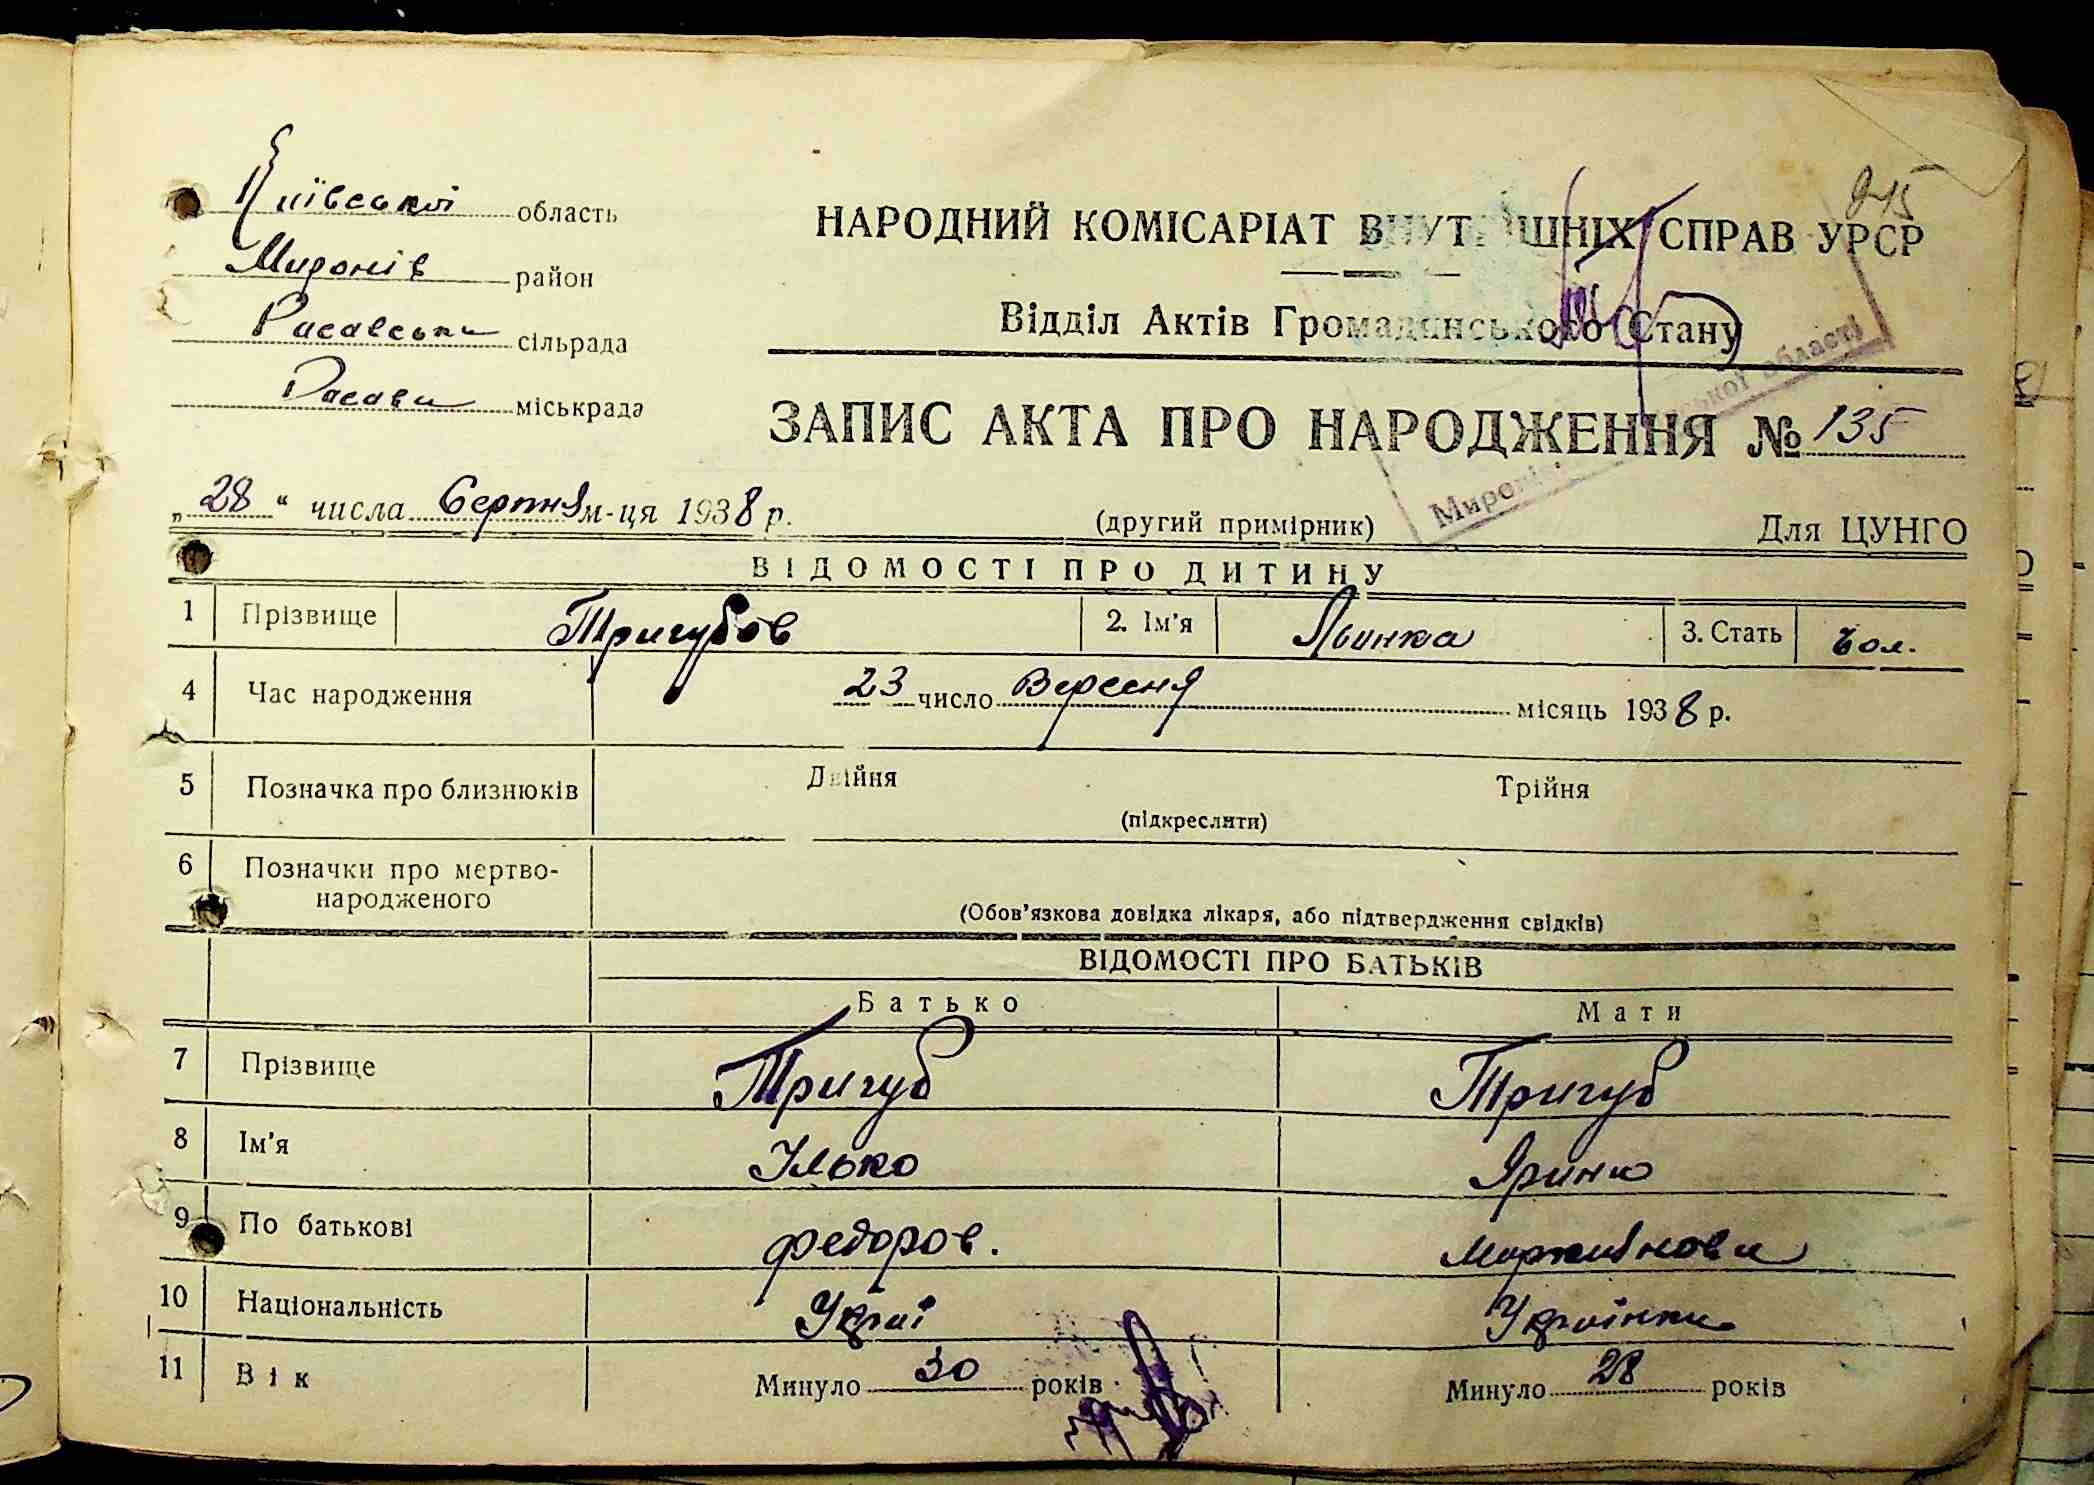 Київської область
Миронів район
Расавська сільрада
Расава міськрада
945
НАРОДНИЙ КОМІСАРІАТ ВНУТРІШНІХ СПРАВ УРСР
Відділ Актів Громадянського Стану
ЗАПИС АКТА ПРО НАРОДЖЕННЯ № 135
„28“ числа Серпня м-ця 1938 р.
(другий примірник)
Для ЦУНГО
ВІДОМОСТІ ПРО ДИТИНУ
1 Прізвище Тригубов 2. Ім'я 3. Стать чол.
4 Час народження 23 число Вересня місяць 1938 р.
5 Позначка про близнюків Двійня Трійня
(підкреслити)
6 Позначки про мертво-
народженого
(Обов'язкова довідка лікаря, або підтвердження свідків)
ВІДОМОСТІ ПРО БАТЬКІВ
Батько Мати
7 Прізвище Тригуб Тригуб
8 Ім'я Ілько Ярина
9 По батькові Федоров. Мартинова
10 Національність Украї Українка
11 Вік Минуло 30 років Минуло 28 років